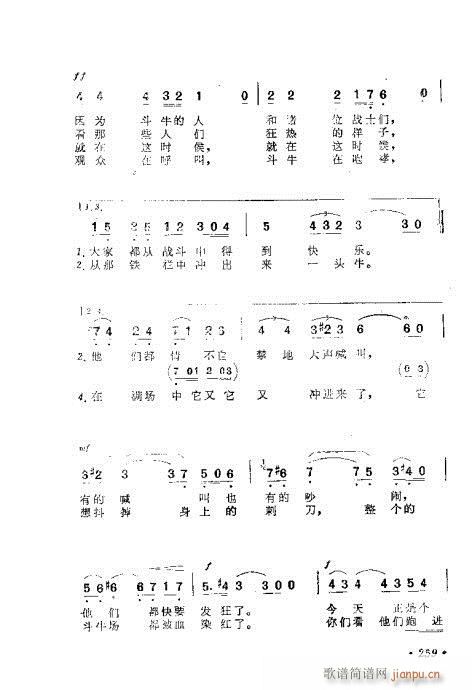 ff
4 4 4 3 2 1 0 2 2 2 1 7 6 0
因为 斗牛的人 和诸 位战士们，
看那 些人们 狂热 的样子，
就在 这时候， 就在 这时候，
观众 在呼叫， 斗牛 在咆哮，
1. 3.
1 5 2 5 1 2 1 2 3 0 4 5 4 3 2 3 3 0
1.大家 都从 战斗 中 得 到 快 乐。
2.从那 铁 栏中 冲 出 来 一 头 牛。
2. 4 4 3 #2 3 6 6 0
2.他 们都 情 不 禁地 大声喊叫，
(7 01 2 03) (0 3)
4.在 满场 中它又它 又 冲进来了， 它
mf
3 #2 3 3 7 5 0 6 7 #6 7 7 5 3 #4 0
有的 喊 叫也 有的 吵 闹，
想抖 掉 身上的 刺刀， 整个的
f f
5 6 #6 6 7 1 7 5. #4 3 0 0 4 3 4 4 3 5 4
他们 都快要 发狂了。 今天 正是个
斗牛场 都被血 染红了。 你们看 他们跑 进
• 259 •
歌谱简谱网
jianpu.cn